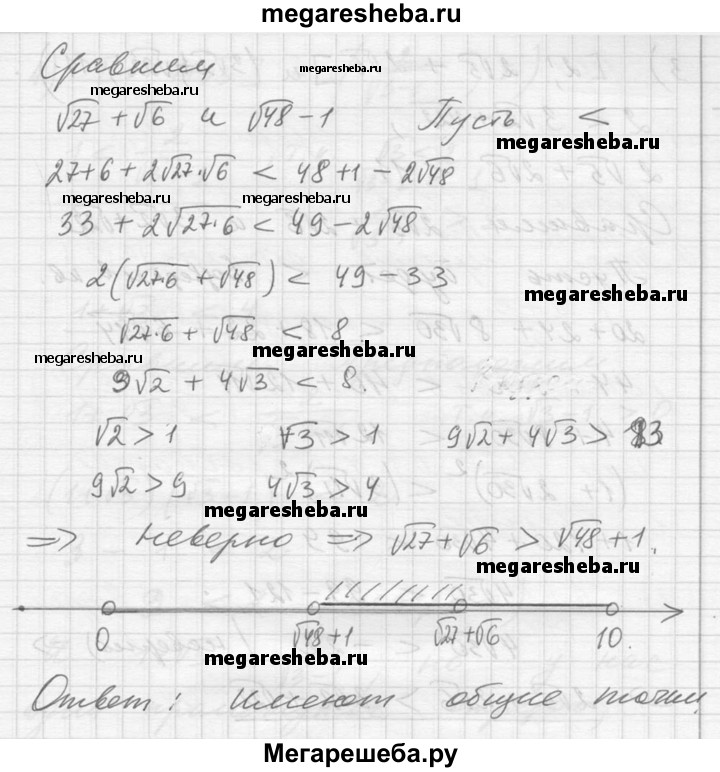 megaresheba.ru
Сравним
megaresheba.ru
megaresheba.ru
√27 + √6 и √48 − 1 Пусть <
megaresheba.ru
27 + 6 + 2√27·√6 < 48 + 1 − 2√48
megaresheba.ru megaresheba.ru
33 + 2√27·6 < 49 − 2√48
2(√27·6 + √48) < 49 − 33
megaresheba.ru
√27·6 + √48 < 8
megaresheba.ru
megaresheba.ru
9√2 + 4√3 < 8.
megaresheba.ru
√2 > 1 √3 > 1 9√2 + 4√3 > 13
9√2 > 9 4√3 > 4
megaresheba.ru
=> неверно => √27 + √6 > √48 + 1.
megaresheba.ru
0 √48 + 1 √27 + √6 10.
megaresheba.ru
Ответ: имеют общие точки.
megaresheba.ru
Мегарешеба.ру